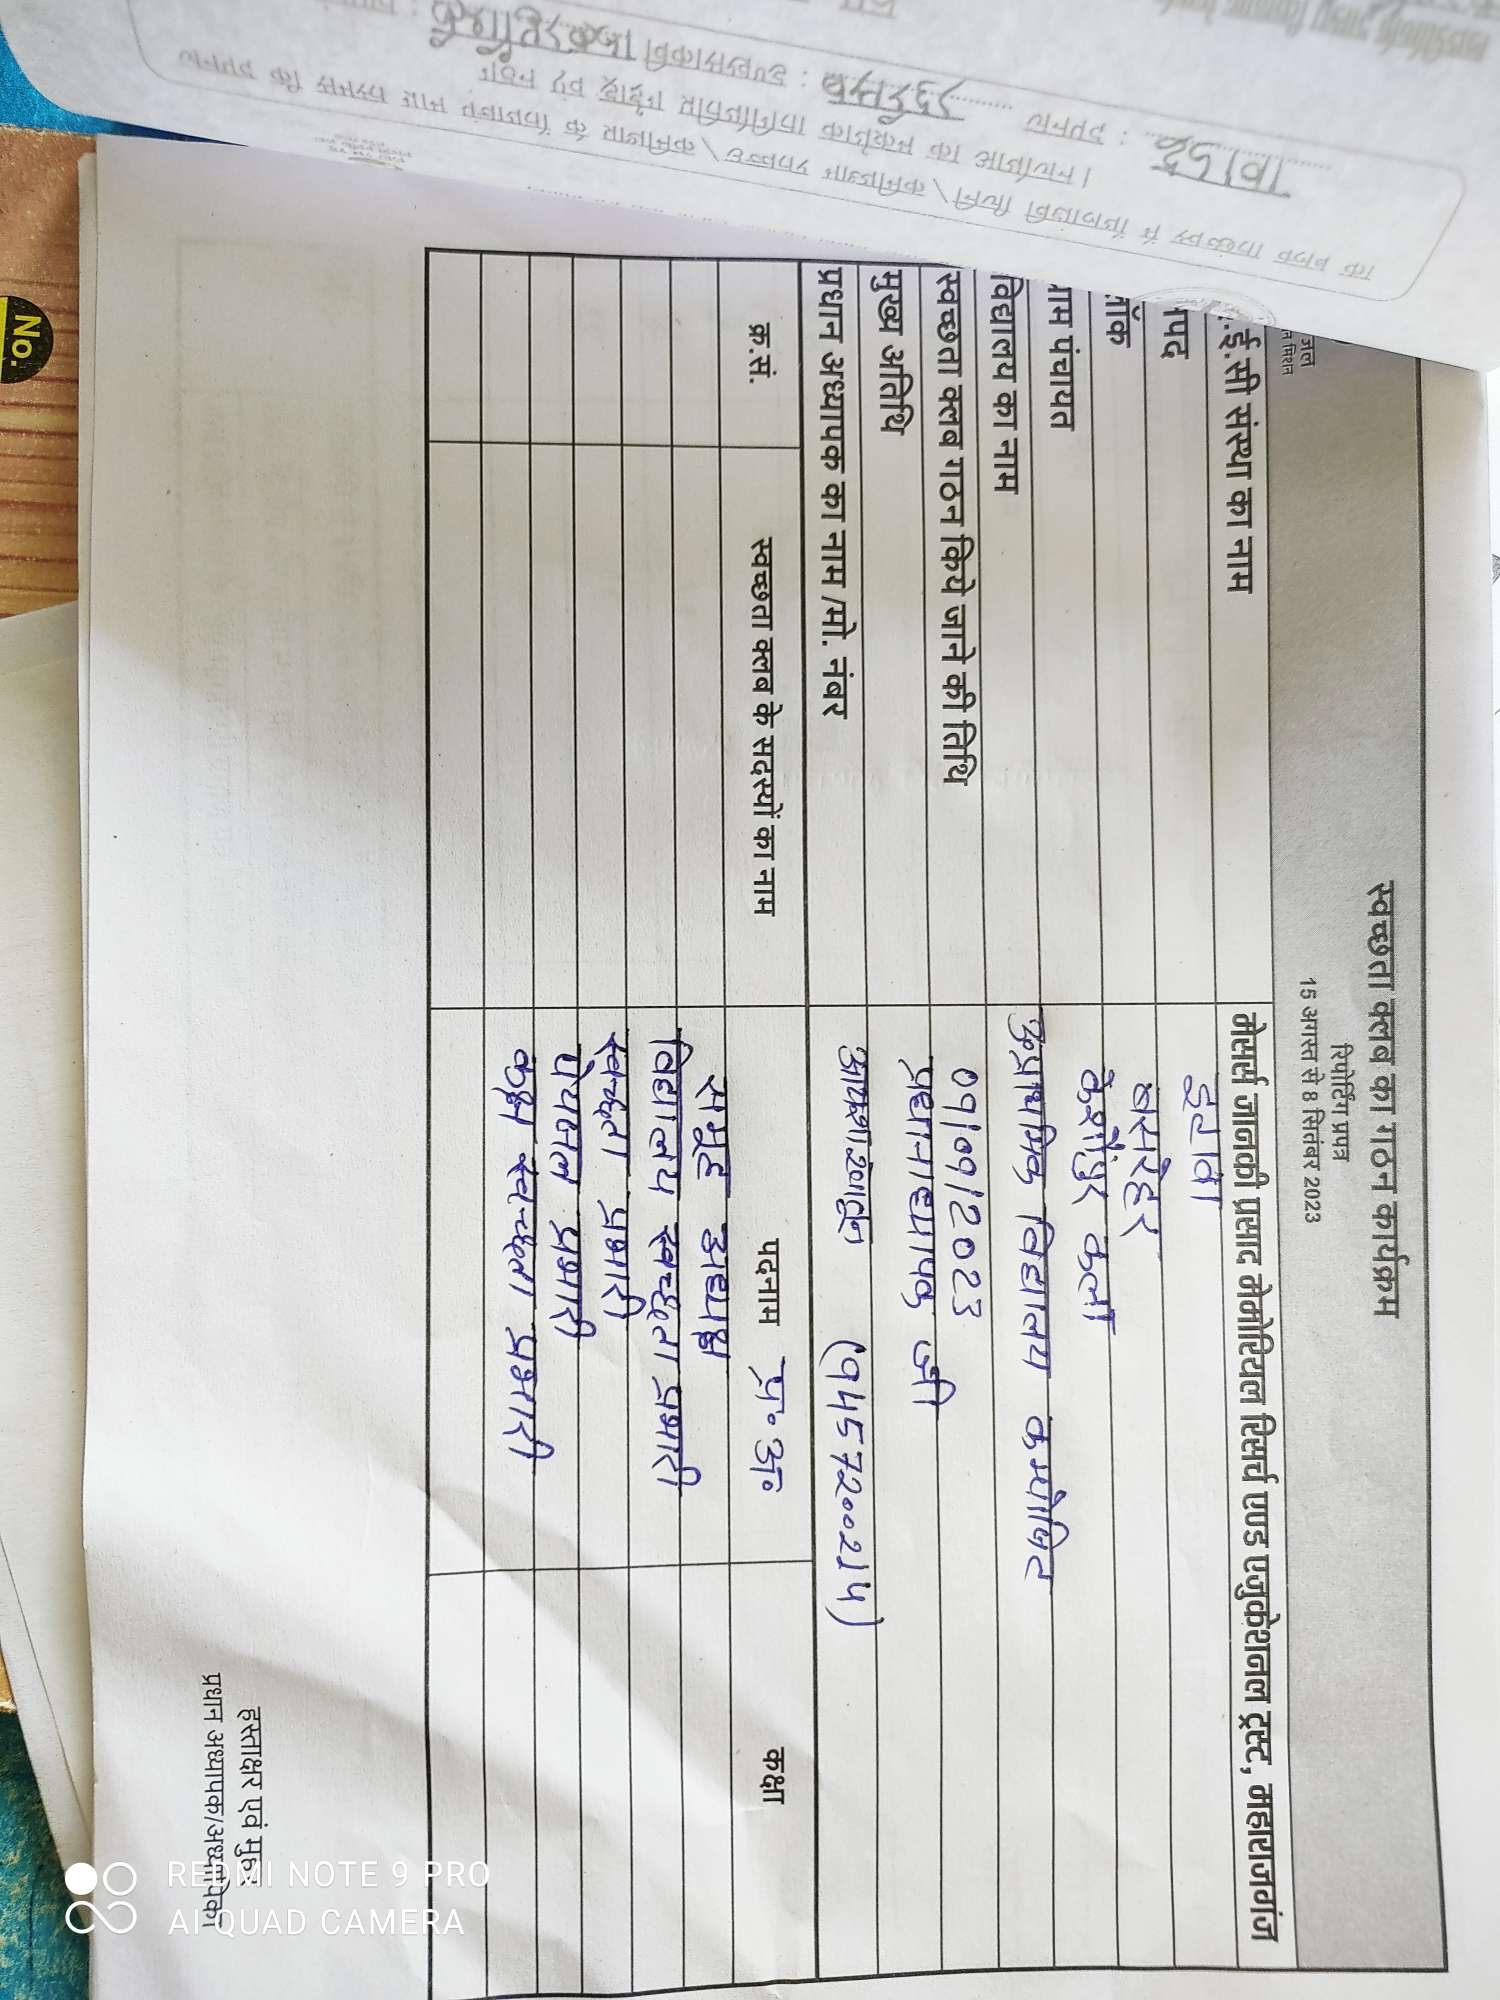 स्वच्छता क्लब का गठन कार्यक्रम
रिपोर्टिंग प्रपत्र
15 अगस्त से 8 सितंबर 2023
जल
न मिशन
.ई.सी संस्था का नाम मेसर्स जानकी प्रसाद मेमोरियल रिसर्च एण्ड एजुकेशनल ट्रस्ट, महाराजगंज
नपद इटावा
लॉक बसरेहर
ग्राम पंचायत केशोंपुर कलॉ
विद्यालय का नाम उ०प्राथमिक विद्यालय कम्पोजिट
स्वच्छता क्लब गठन किये जाने की तिथि 09/09/2023
मुख्य अतिथि प्रधानाध्यापक जी
प्रधान अध्यापक का नाम /मो. नंबर (9457200214)
क्र.सं. स्वच्छता क्लब के सदस्यों का नाम पदनाम प्र॰अ॰ कक्षा
समूह अध्यक्ष
विद्यालय स्वच्छता प्रभारी
स्वच्छता प्रभारी
पेयजल प्रभारी
कक्ष स्वच्छता प्रभारी
हस्ताक्षर एवं मुहर
प्रधान अध्यापक/अध्यापिका
No.
REDMI NOTE 9 PRO
AI QUAD CAMERA